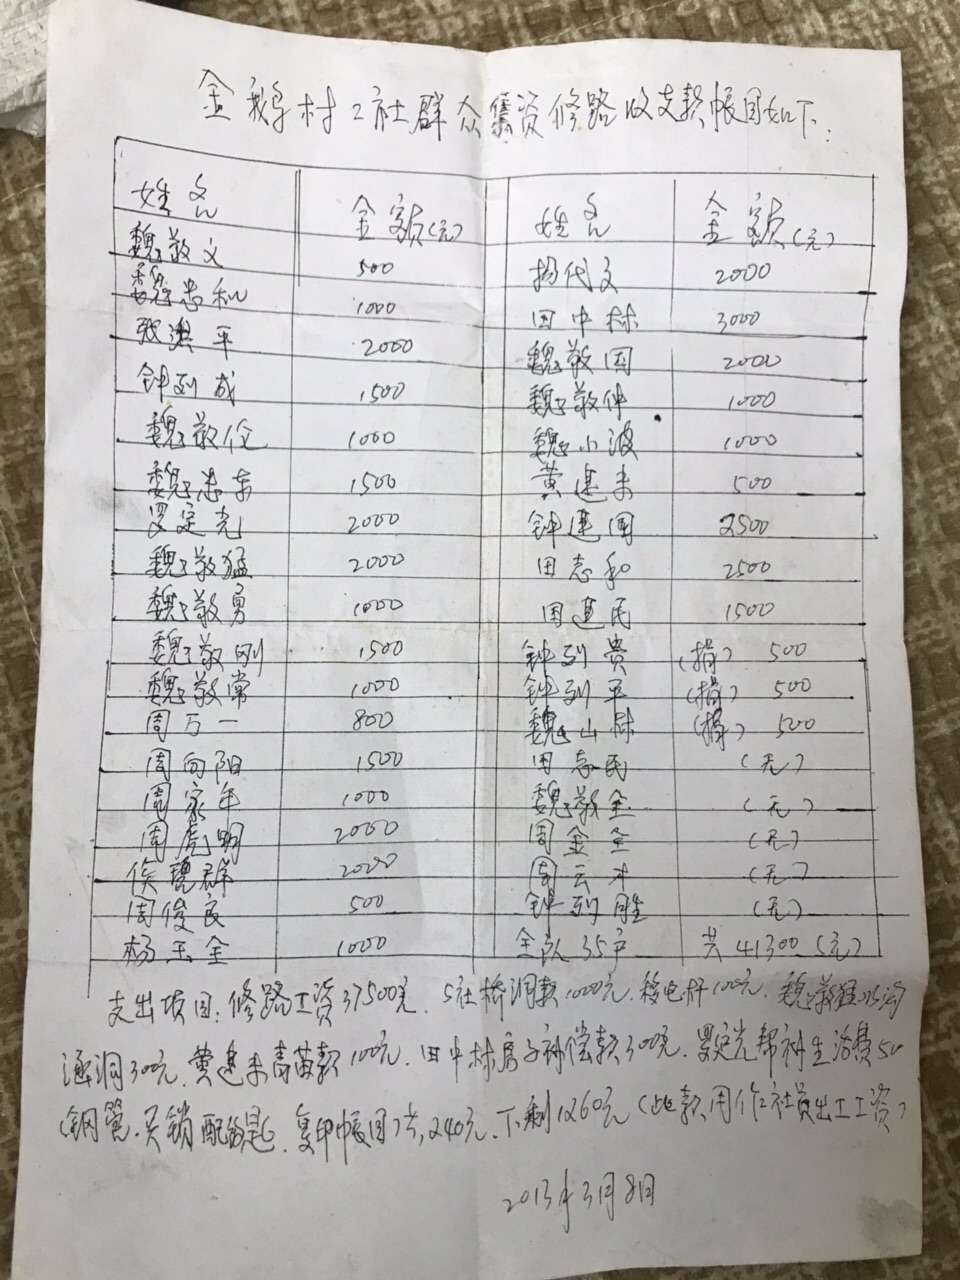 金鹅村2社群众集资修路收支款帐目如下:
姓名 金额(元) 姓名 金额(元)
魏敬文 500 杨代文 2000
魏忠和 1000 田中林 3000
张洪平 2000 魏敬国 2000
钟列成 1500 魏敬仲 1000
魏敬伦 1000 魏小波 1000
魏忠东 1500 黄建未 500
罗定光 2000 钟建国 2500
魏敬猛 2000 田志和 2500
魏敬勇 1000 田建民 1500
魏敬刚 1500 钟列贵 (捐) 500
魏敬常 1000 钟列平 (捐) 500
周万一 800 魏山林 (捐) 500
周向阳 1500 田志民 (无)
周家年 1000 魏敬全 (无)
周虎明 2000 周金全 (无)
侯琼群 2000 周云才 (无)
周俊良 500 钟列胜 (无)
杨玉金 1000 全队35户 共41300(元)
支出项目:修路工资37500元.5社桥洞款1000元.移电杆100元.魏敬猛
涵洞300元.黄建未青苗款100元.田中林房子补偿款300元.罗定光帮补生活费50
(钢管.买锁配钥匙.复印帐目)共240元.下剩1260元(此款用作社员出工工资)
2013年3月8日